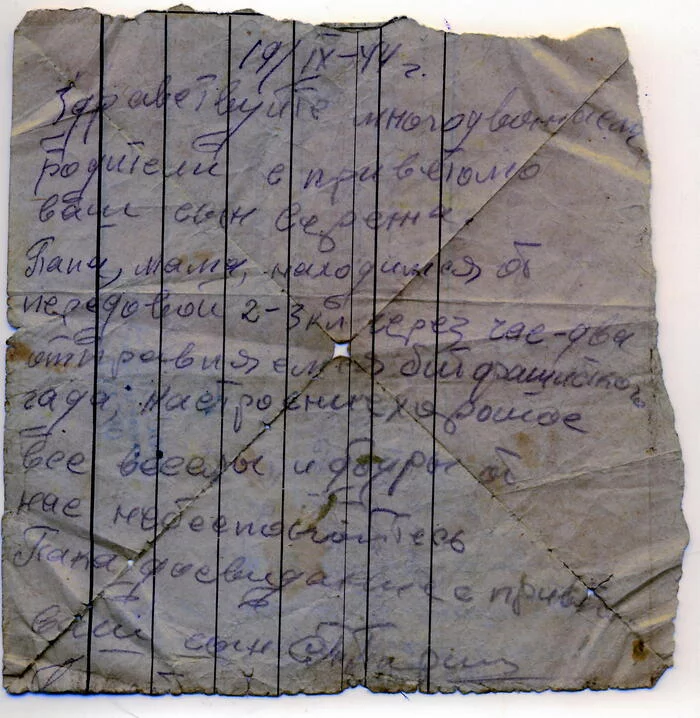 19/IX-44 г.
Здравствуйте многоуважаемы
родители с приветом
ваш сын
Папа, мама, находимся от
передовой 2-3 км через час-два
отправляемся в бой фашистского
гада, настроение хорошое
все веселы и бодры об
нас небеспокойтесь
Папа, досвидание с привет
ваш сын